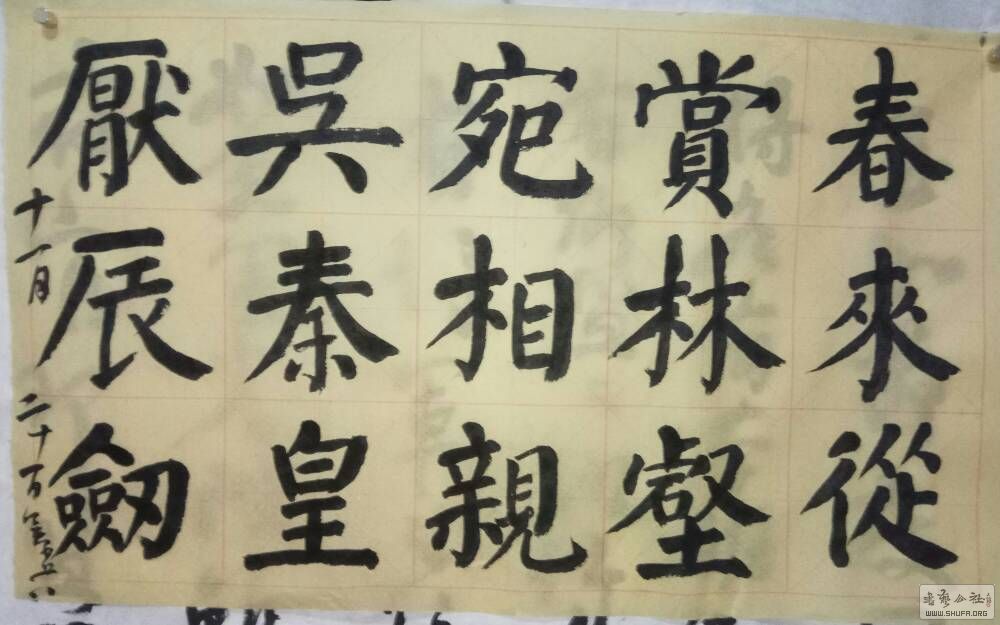 春來從
賞林壑
宛相親
吳秦皇
厭辰劒
十一月二十万
书艺公社
WWW.SHUFA.ORG